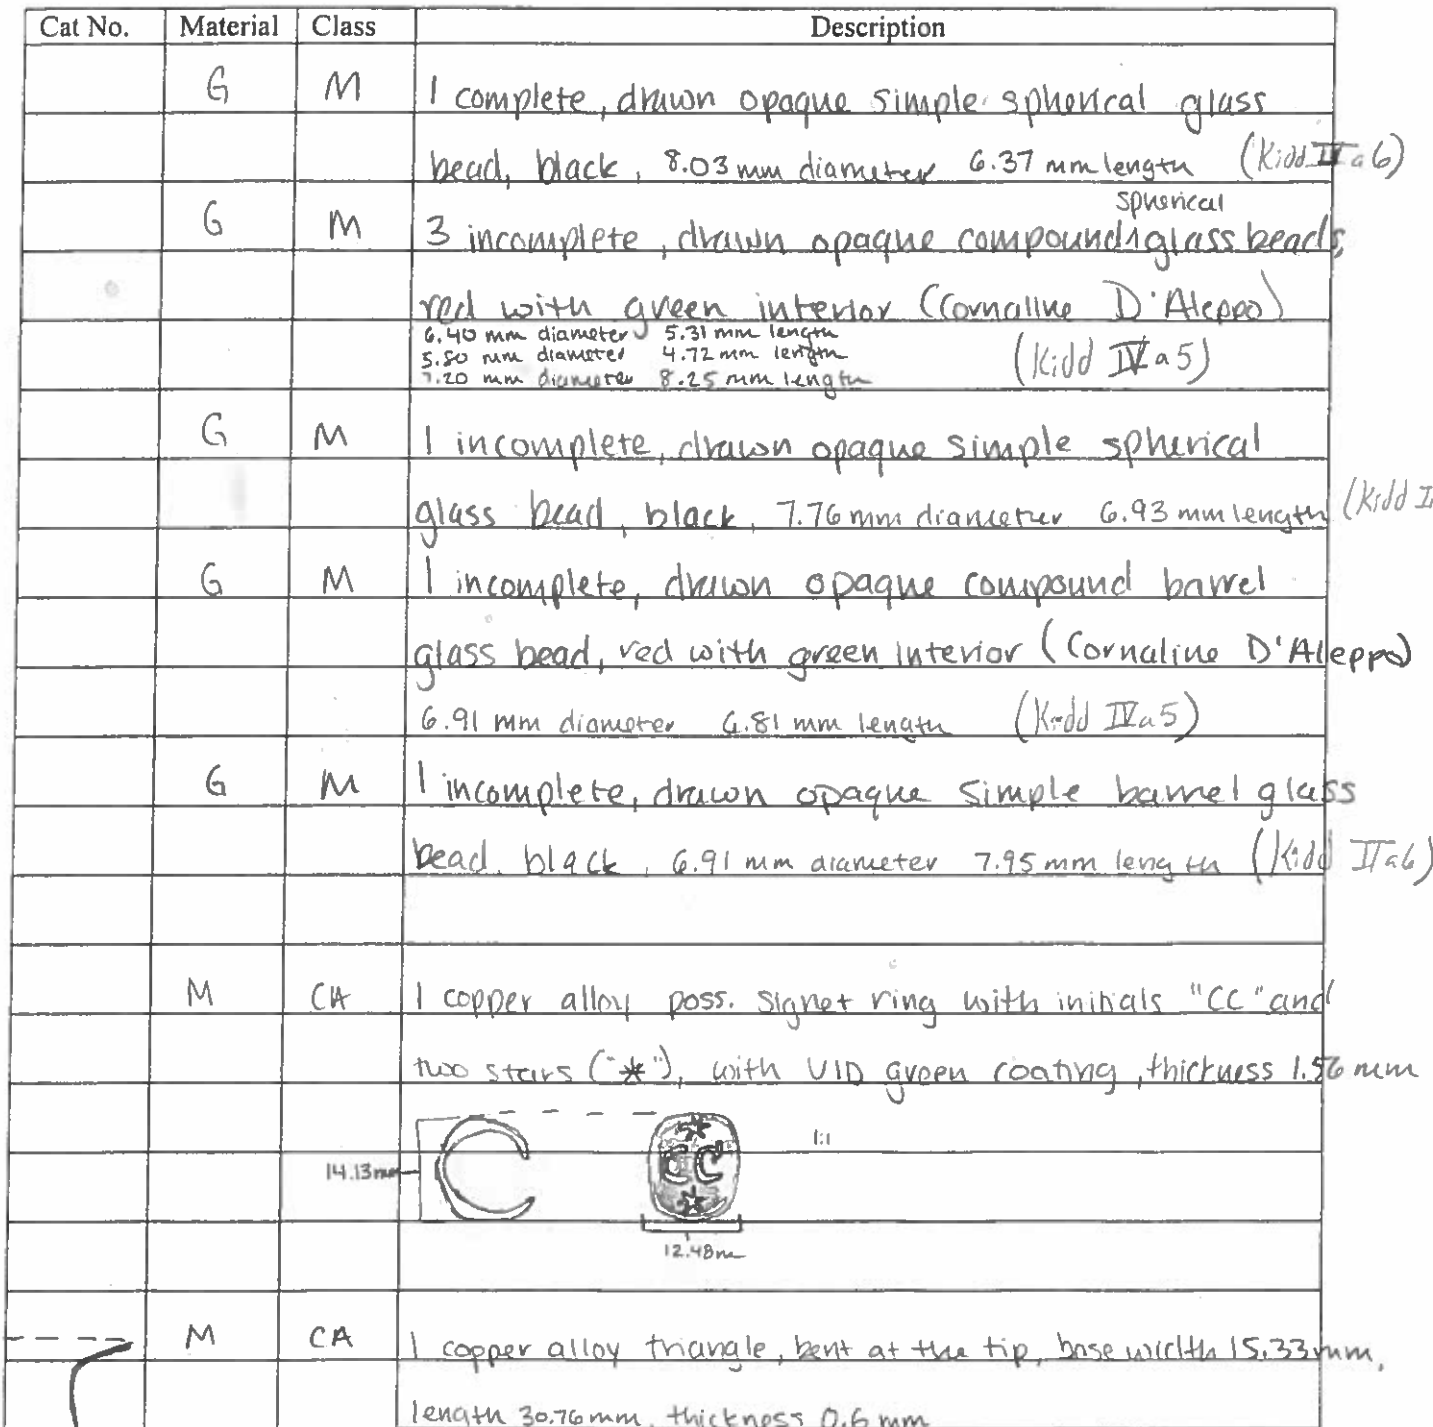 Cat No. Material Class Description
G M 1 complete, drawn opaque simple spherical glass
bead, black, 8.03 mm diameter 6.37 mm length (Kidd IIa6)
spherical
G M 3 incomplete, drawn opaque compound glass beads,
red with green interior (Cornaline D'Aleppo)
6.40 mm diameter 5.31 mm length
5.80 mm diameter 4.72 mm length
7.20 mm diameter 8.25 mm length
(Kidd IVa5)
G M 1 incomplete, drawn opaque simple spherical
glass bead, black, 7.76 mm diameter 6.93 mm length (Kidd
G M 1 incomplete, drawn opaque compound barrel
glass bead, red with green interior (Cornaline D'Aleppo)
6.91 mm diameter 6.81 mm length (Kidd IVa5)
G M 1 incomplete, drawn opaque simple barrel glass
bead, black, 6.91 mm diameter 7.95 mm length (Kidd IIa6)
M CA 1 copper alloy poss. signet ring with initials "CC" and
two stars ("*"), with UID green coating, thickness 1.56 mm
1:1
CC
14.13mm
12.48m
M CA 1 copper alloy triangle, bent at the tip, base width 15.33 mm,
length 30.76 mm, thickness 0.6 mm